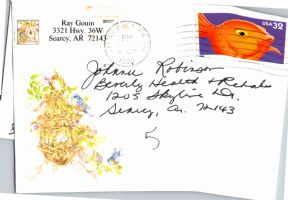 Ray Gouin
3321 Hwy. 36W
Searcy, AR 72143
PM
USA 32
Johnnie Robinson
Beverly Health & Rehab
1205 Skyline Dr.
Searcy, Ar. 72143
5